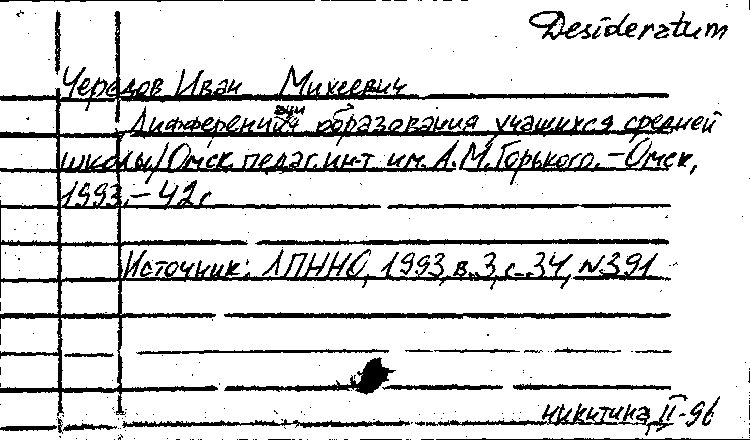 Desideratum
Чередов Иван Михеевич
Дифференциация образования учащихся средней
школы/Омск. педаг. ин-т им. А.М.Горького.-Омск,
1993.-42с
Источник: ЛПННО, 1993, в.3, с.34, №391
никитина, II-96